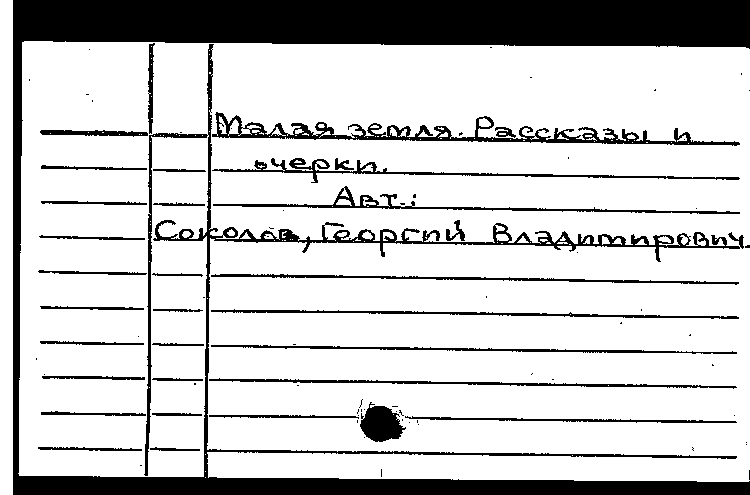 Малая земля. Рассказы и
очерки.
Авт.:
Соколов, Георгий Владимирович